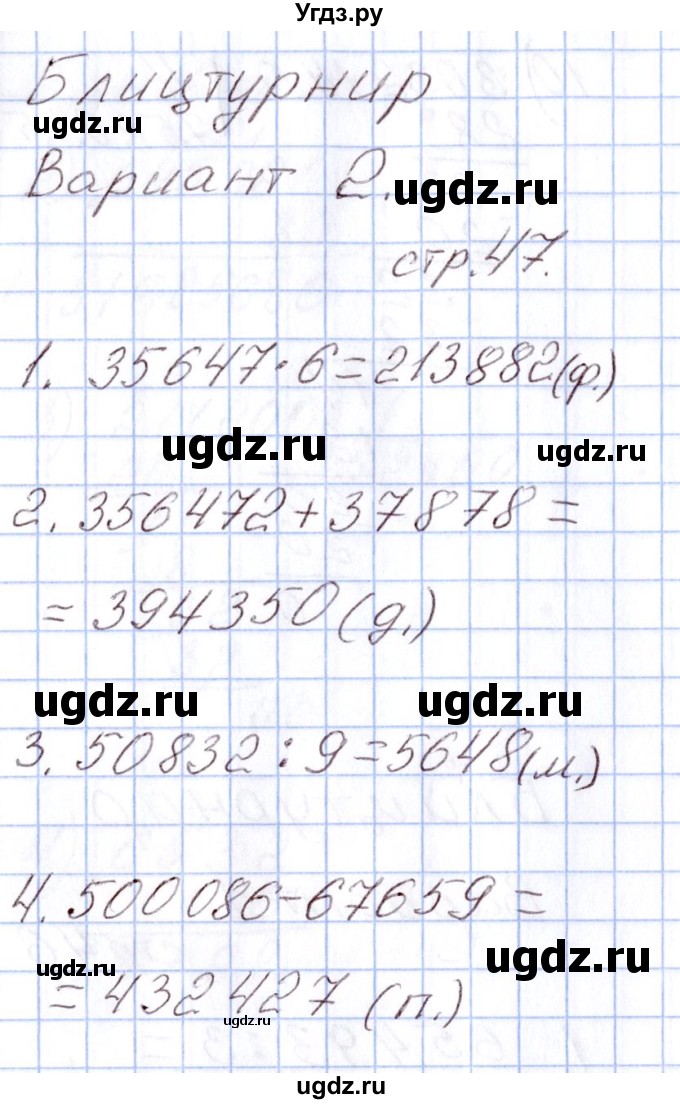 Угдз.ру
Блицтурнир
ugdz.ru
Вариант 2.
ugdz.ru
стр.47.
1. 35647·6=213882(ф.)
ugdz.ru
ugdz.ru
2. 356472+37878=
=394350(д.)
ugdz.ru
ugdz.ru
3. 50832:9=5648(м.)
4. 500086-67659=
ugdz.ru
ugdz.ru
=432427 (п.)
ugdz.ru
ugdz.ru